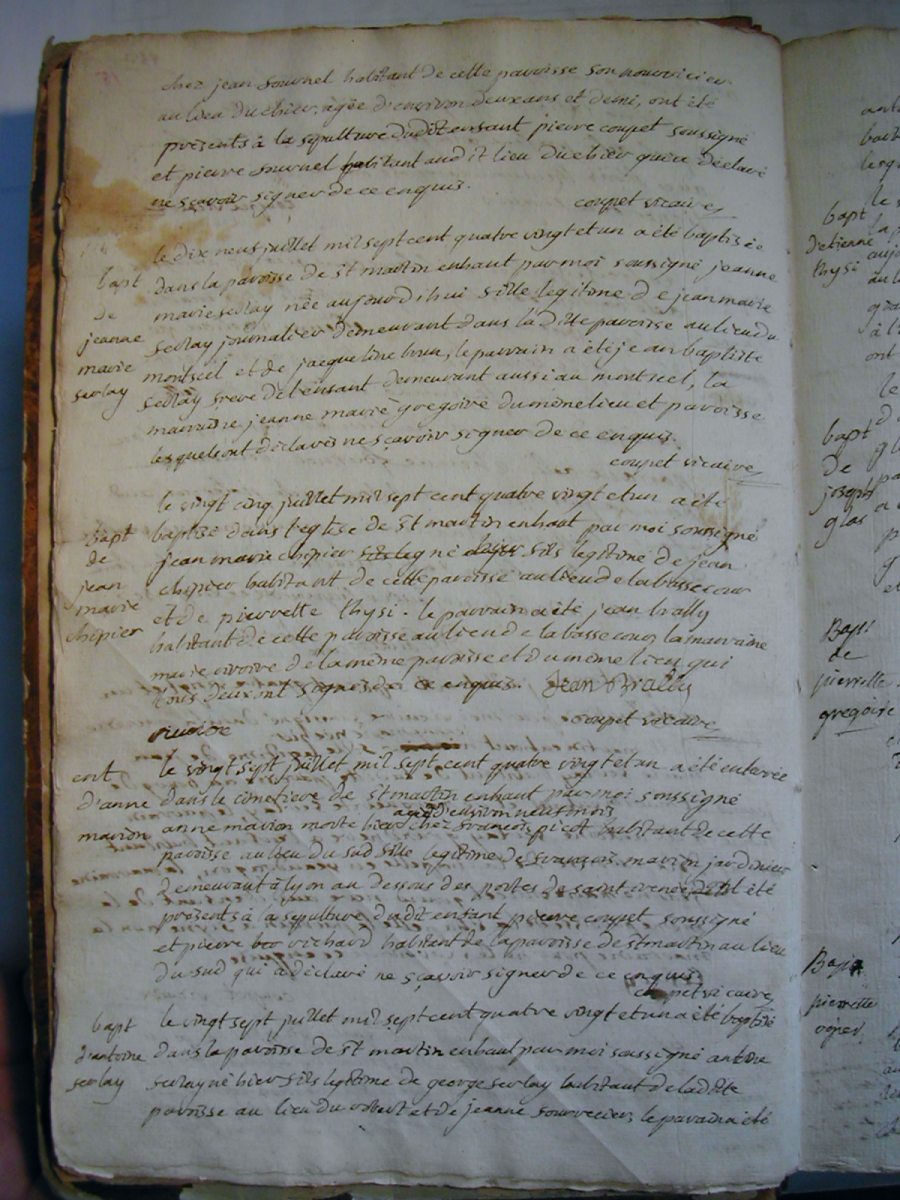 chez jean fournel habitant de cette paroisse son nourricier
au lieu du thier, agée d'environ deux ans et demi, ont été
présents à la sepulture dudit enfant pierre coupet soussigné
et pierre fournel habitant audit lieu du qui a déclaré
ne sçavoir signer de ce enquis.
coupet vicaire
le dix neuf juillet mil sept cent quatre vingt et un a été baptisée
bapt dans la paroisse de st martin enhaut par moi soussigné jeanne
de marie serlay née aujourd'hui fille legitime de jean marie
jeanne serlay journalier demeurant dans la dite paroisse au lieu du
marie montseel et de jacqueline brun, le parrain a été jean baptiste
serlay serlay frere dit enfant demeurant aussi au montseel, la
marraine jeanne marie gregoire du même lieu et paroisse
lesquels ont déclarés ne sçavoir signer de ce enquis.
coupet vicaire
le vingt cinq juillet mil sept cent quatre vingt et un a été
bapt baptisé dans l'eglise de st martin enhaut par moi soussigné
de jean marie chipier né fils legitime de jean
jean chipier habitant de cette paroisse au lieu de la basse cour
marie et de pierrette thysi. le parrain a été jean bially
chipier habitant de cette paroisse au lieu de la basse cour, la marraine
marie de la même paroisse et du même lieu, qui
tous deux ont signés de ce enquis. Jean Bially
coupet vicaire
ent le vingt sept juillet mil sept cent quatre vingt et un a été enterrée
d'anne dans le cimetiere de st martin enhaut par moi soussigné
agée d'environ neuf mois
marion anne marion morte hier chez françois picot habitant de cette
paroisse au lieu du sud fille legitime de françois marion jardinier
demeurant à lyon au dessous des portes de saint irenée ont été
présents à la sepulture dudit enfant pierre coupet soussigné
et pierre richard habitant de la paroisse de st martin au lieu
du sud qui a déclaré ne sçavoir signer de ce enquis
coupet vicaire
bapt le vingt sept juillet mil sept cent quatre vingt et un a été baptisé
d'antoine dans la paroisse de st martin enhaut par moi soussigné antoine
serlay serlay né hier fils legitime de george serlay habitant de la dite
paroisse au lieu du robert et de jeanne le parrain a été
bapt
d'etienne
thysi
bapt
de
joseph
glas
Bapt
de
pierrette
gregoire
Bapt
pierrette